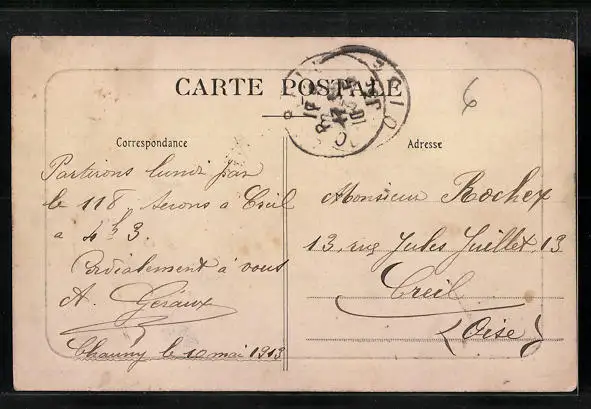 CARTE POSTALE
6
Correspondance
Partirons lundi par
le 118, serons à Creil
a 4h3.
Cordialement à vous
A.
Chauny le 10 mai 1913
Adresse
Monsieur Rochex
13, rue Jules Juillet, 13
Creil
(Oise)